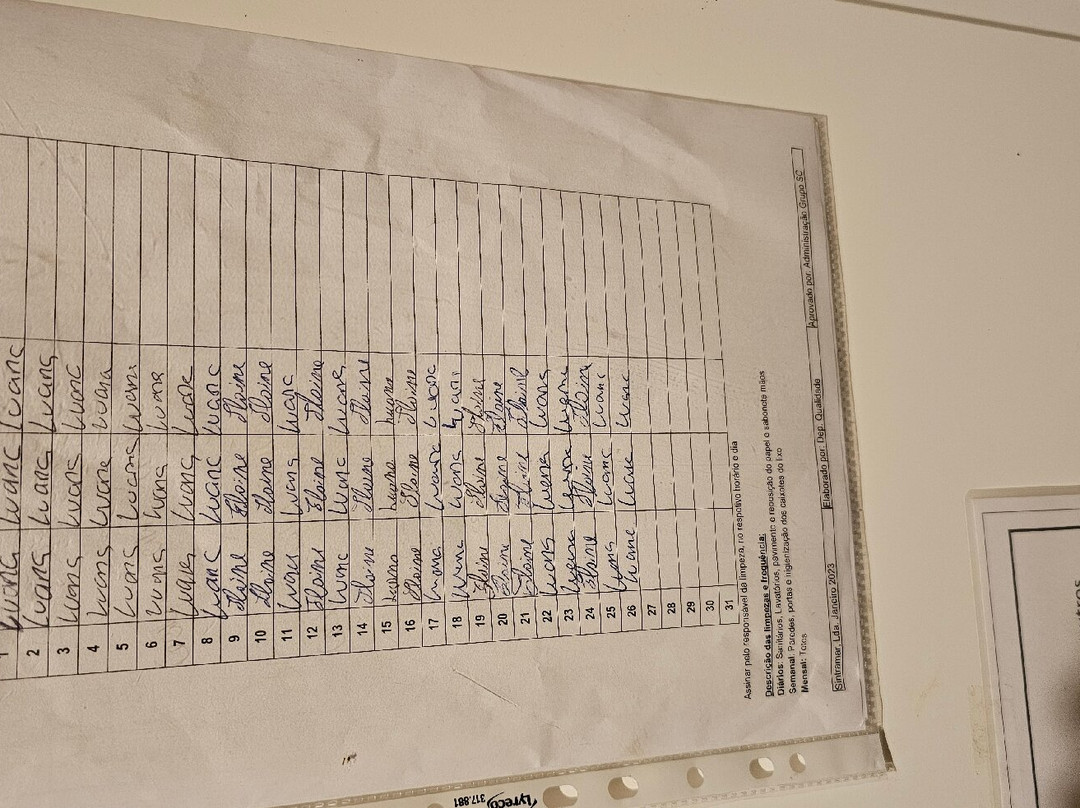 1 Luana Luana Luana
2 Luana Luana Luana
3 Luana Luana Luana
4 Luana Luana Luana
5 Luana Luana Luana
6 Luana Luana Luana
7 Luana Luana Luana
8 Luana Luana Luana
9 Elaine Elaine Elaine
10 Elaine Elaine Elaine
11 Luana Luana Luana
12 Elaine Elaine Elaine
13 Luana Luana Luana
14 Elaine Elaine Elaine
15 Luana Luana Luana
16 Elaine Elaine Elaine
17 Luana Luana Luana
18 Luana Luana Luana
19 Elaine Elaine Elaine
20 Elaine Elaine Elaine
21 Elaine Elaine Elaine
22 Luana Luana Luana
23 Luana Luana Luana
24 Elaine Elaine Elaine
25 Luana Luana Luana
26 Luana Luana Luana
27
28
29
30
31
Assinar pelo responsável da limpeza, no respetivo horário e dia
Descrição das limpezas e frequência:
Diários: Sanitários, Lavatórios, pavimento e reposição do papel e sabonete mãos
Semanal: Paredes, portas e higienização dos caixotes do lixo
Mensal: Tetos
Sintramar, Lda. Janeiro 2023 Elaborado por: Dep. Qualidade Aprovado por: Administração Grupo SC
Lyreco
317.881